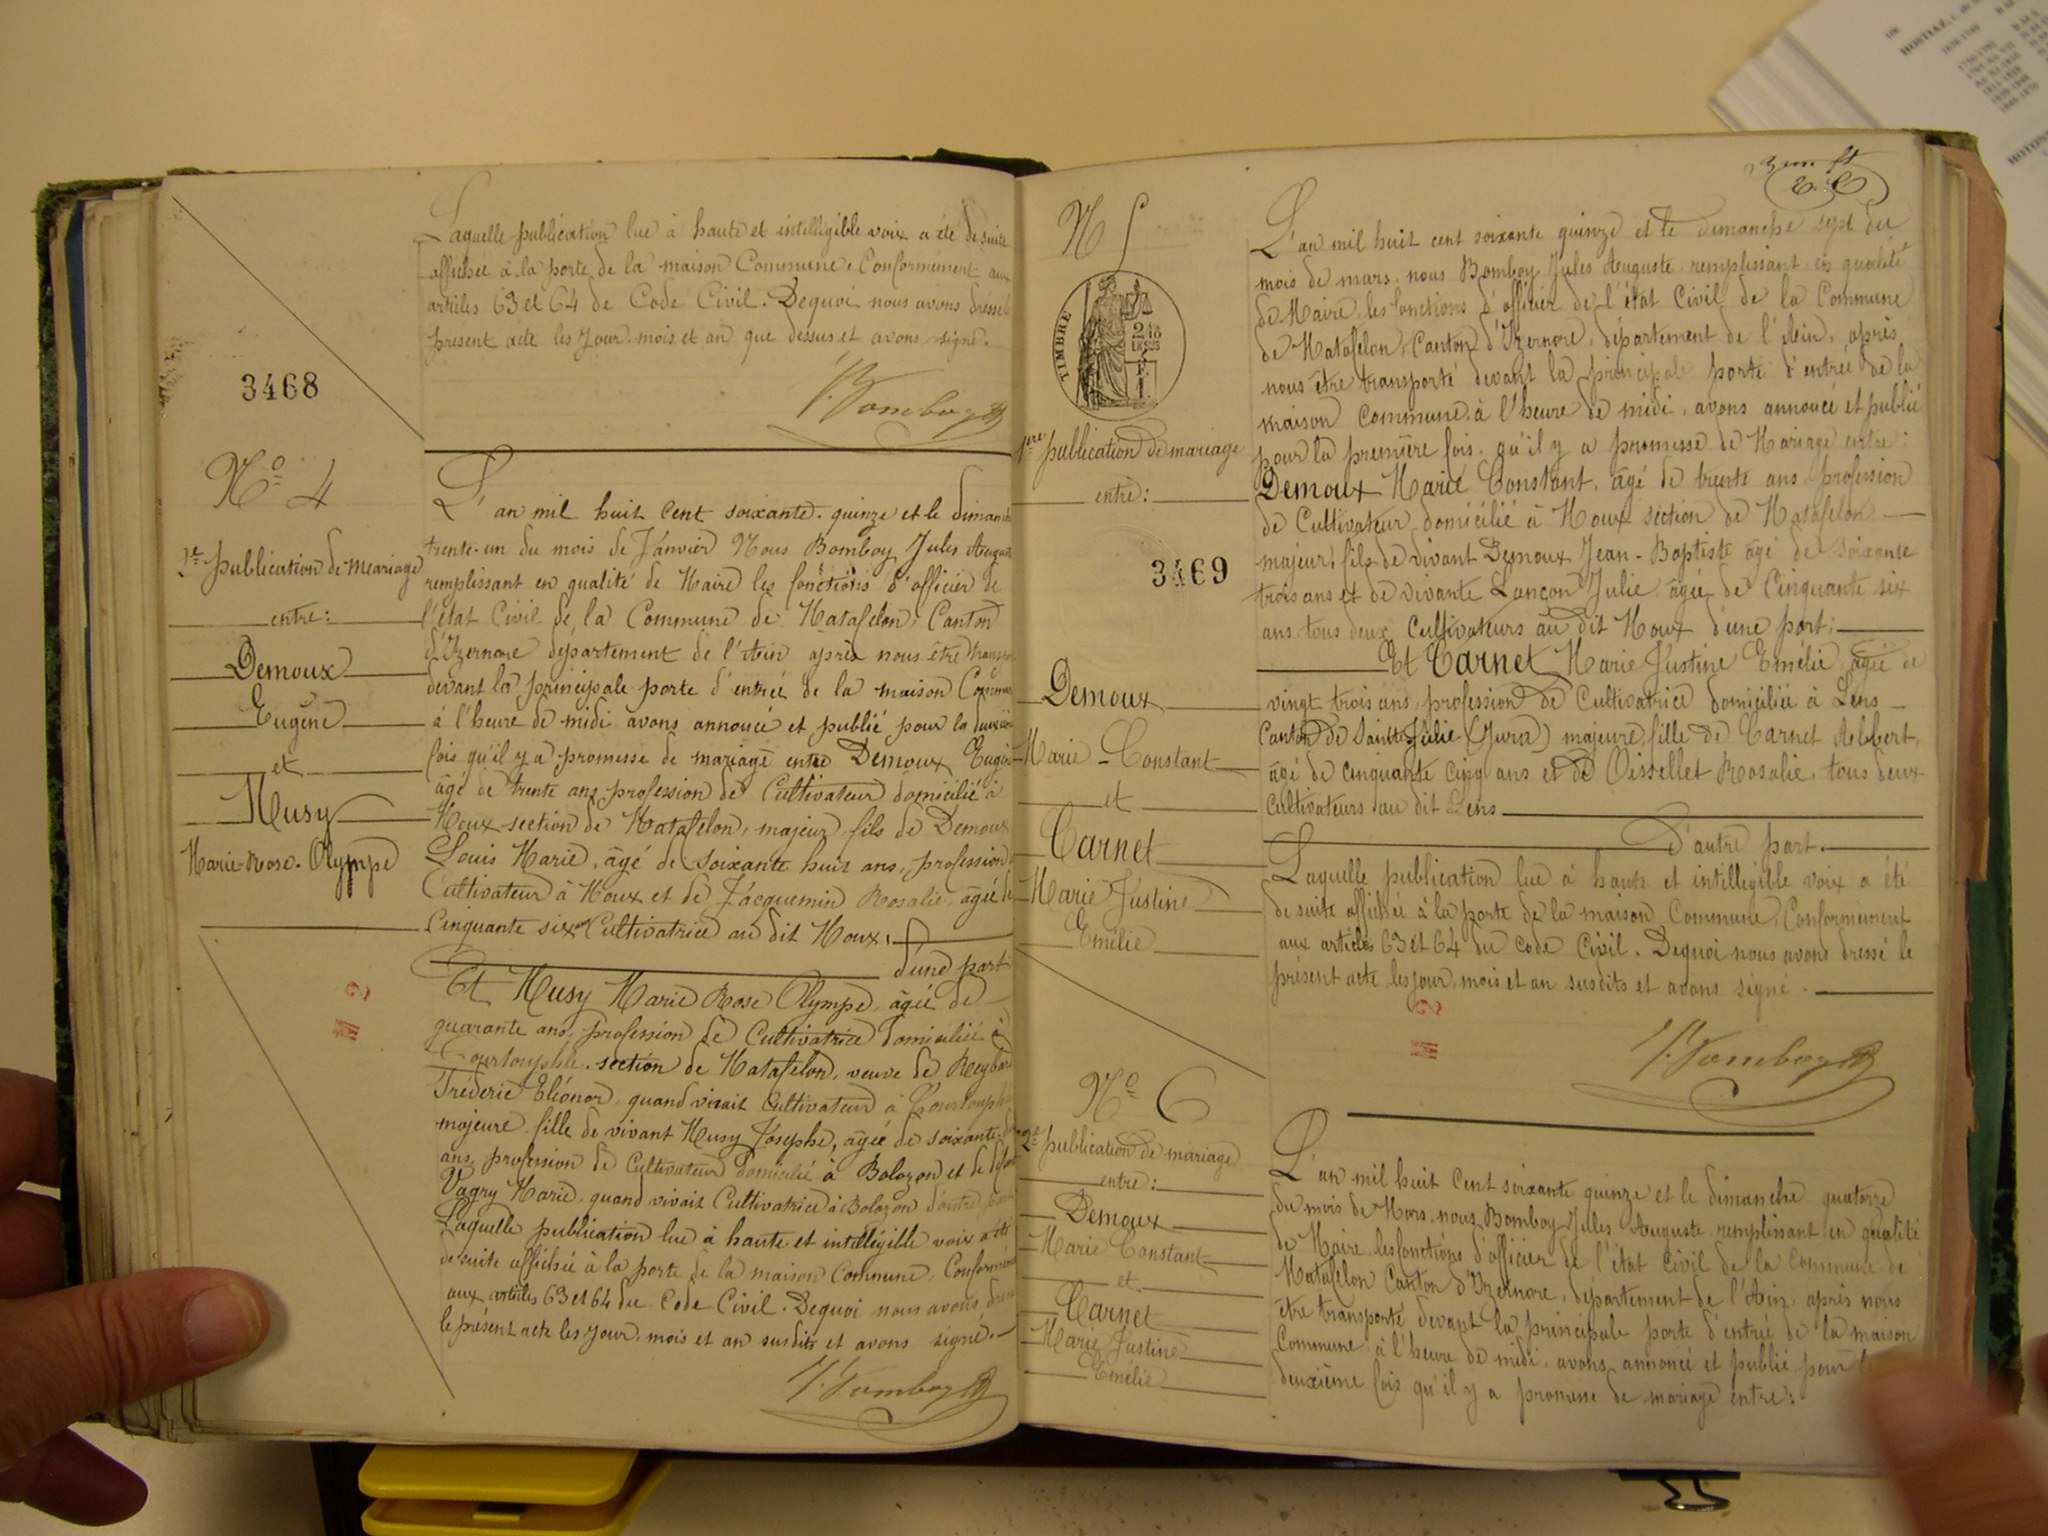 Laquelle publication lue à haute et intelligible voix a été de suite
affichée à la porte de la maison Commune, Conformément aux
articles 63 et 64 de Code Civil. Dequoi nous avons dressé le
présent acte les jour, mois et an que dessus et avons signé.
J. Bomboy
3468
No 4
2e publication de Mariage
entre:
Demoux
Eugène
et
Musy
Marie-Rose-Olympe
L'an mil huit cent soixante quinze et le dimanche
trente-un du mois de Janvier Nous Bomboy Jules Auguste
remplissant en qualité de Maire les fonctions d'officier de
l'état Civil de la Commune de Matafelon, Canton
d'Izernore département de l'Ain après nous être transporté
devant la principale porte d'entrée de la maison Commune
à l'heure de midi avons annoncé et publié pour la deuxième
fois qu'il y a promesse de mariage entre Demoux Eugène
âgé de trente ans profession de Cultivateur domicilié à
Houx section de Matafelon, majeur, fils de Demoux
Louis Marie, âgé de soixante huit ans, profession
Cultivateur à Houx et de Jacquemin Rosalie, âgée de
Cinquante six ans Cultivatrice au dit Houx,
d'une part
Et Musy Marie Rose Olympe, âgée de
quarante ans, profession de Cultivatrice domiciliée à
Courtouphle section de Matafelon, veuve de
Fréderic Eléonor, quand vivait Cultivateur à Courtouphle
majeure fille de vivant Musy Josephe, âgée de soixante
ans, profession de Cultivateur domicilié à Bolozon et de défunte
Vagry Marie, quand vivait Cultivatrice à Bolozon d'autre part
Laquelle publication lue à haute et intelligible voix a été
de suite affichée à la porte de la maison Commune, Conformément
aux articles 63 et 64 du Code Civil. Dequoi nous avons dressé
le présent acte les jour, mois et an susdits et avons signé.
J. Bomboy
N 5
TIMBRE
1ere publication de mariage
entre:
3469
Demoux
Marie-Constant
et
Carnet
Marie Justine
Emélie
L'an mil huit cent soixante quinze et le dimanche sept du
mois de mars, nous Bomboy Jules Auguste, remplissant en qualité
de Maire les fonctions d'officier de l'état Civil de la Commune
de Matafelon, Canton d'Izernore, département de l'Ain, après
nous être transporté devant la principale porte d'entrée de la
maison Commune à l'heure de midi, avons annoncé et publié
pour la première fois qu'il y a promesse de Mariage entre:
Demoux Marie Constant, âgé de trente ans profession
de Cultivateur domicilié à Houx section de Matafelon
majeur, fils de vivant Demoux Jean-Baptiste âgé de soixante
trois ans et de vivante Lançon Julie âgée de Cinquante six
ans, tous deux Cultivateurs au dit Houx d'une part;
Et Carnet Marie Justine Emélie, âgée de
vingt trois ans, profession de Cultivatrice domiciliée à Lens
Canton de Sainte Julie (Jura) majeure fille de Carnet Albert,
âgé de cinquante cinq ans et de Oissellet Rosalie, tous deux
cultivateurs au dit Lens
D'autre part.
Laquelle publication lue à haute et intelligible voix a été
de suite affichée à la porte de la maison Commune, Conformément
aux articles 63 et 64 du code Civil. Dequoi nous avons dressé le
présent acte les jour, mois et an susdits et avons signé.
J. Bomboy
No 6
2e publication de mariage
entre:
Demoux
Marie Constant
et
Carnet
Marie Justine
Emélie
L'an mil huit Cent soixante quinze et le dimanche quatorze
du mois de Mars, nous Bomboy Jules Auguste remplissant en qualité
de Maire les fonctions d'officier de l'état Civil de la Commune de
Matafelon Canton d'Izernore, département de l'Ain, après nous
être transporté devant la principale porte d'entrée de la maison
Commune à l'heure de midi, avons annoncé et publié pour
deuxième fois qu'il y a promesse de mariage entre: